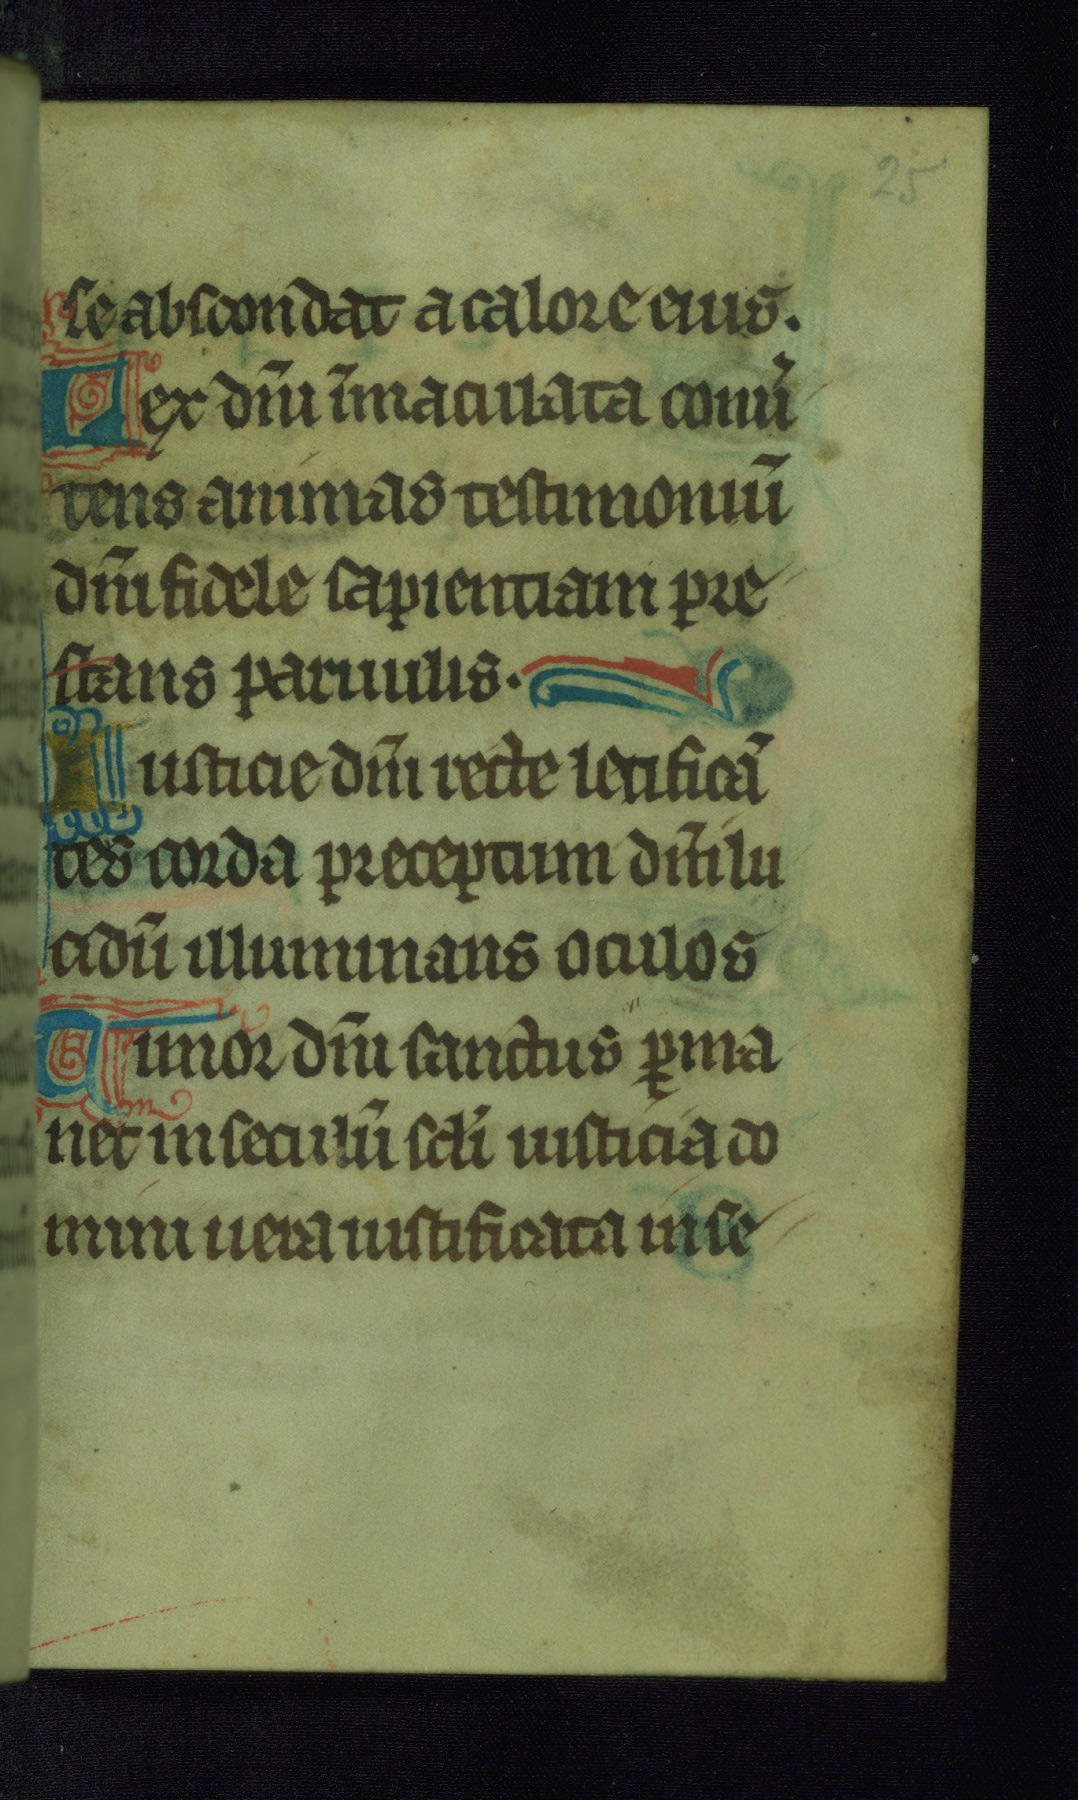 25
se abscondat a calore eius.
Lex dñi īmaculata conu͛
tens animas testimoniū
dñi fidele sapientiam pre
stans paruulis.
Iusticie dñi recte letificā
tes corda preceptum dñi lu
cidū illuminans oculos
Timor dñi sanctus ꝑma
net in seculū scli iusticia do
mini uera iustificata in se